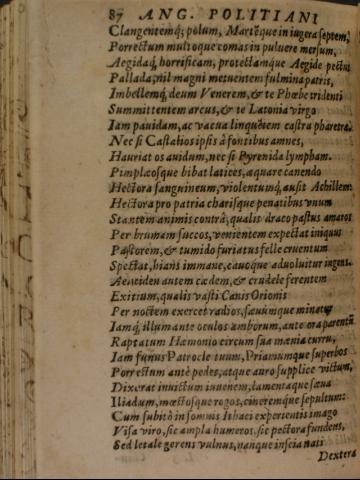 87 ANG. POLITIANI
Clangentemq́; polum, Martẽque in iugera septem,
Porrectum multoque comas in puluere mersum,
Aegidaq́, horrificam, protectámque Aegide pectus
Pallada, nil magni metuentem fulmina patris,
Imbellemq́, deum Venerem, & te Phœbe tridenti
Summittentem arcus, & te Latonia virgo
Iam pauidam, ac vacua linquẽtem castra pharetra.
Nec si Castalios ipsis à fontibus amnes,
Hauriat os auidum, nec si Pyrenida lympham.
Pimplæosque bibat latices, æquare canendo
Hectora sanguineum, violentumq́, ausit Achillem
Hectora pro patria charisque penatibus vnum
Stantem animis contrà, qualis draco pastus amaros
Per brumam succos, venientem expectat iniquus
Pastorem, & tumido furiatus felle cruentum
Spectat, hians immane, cauoque aduoluitur ingens.
Aeaciden autem cædem, & crudele ferentem
Exitium, qualis vasti Canis Orionis
Per noctem exercet radios, sæuumque minatur
Iamq́, illum ante oculos amborum, ante ora parentũ
Raptatum Hæmonio circum sua mœnia curru,
Iam funus Patrocle tuum, Priamumque superbos
Porrectum antè pedes, atque auro supplice victum,
Dixerat inuictum iuuenem, lamentaque sæua
Iliadum, mœstosque rogos, cineremque sepultum:
Cum subitò in somnis Ithaci experientis imago
Visa viro, sic ampla humeros, sic pectora fundens,
Sed letale gerens vulnus, nanque inscia nati
Dextera